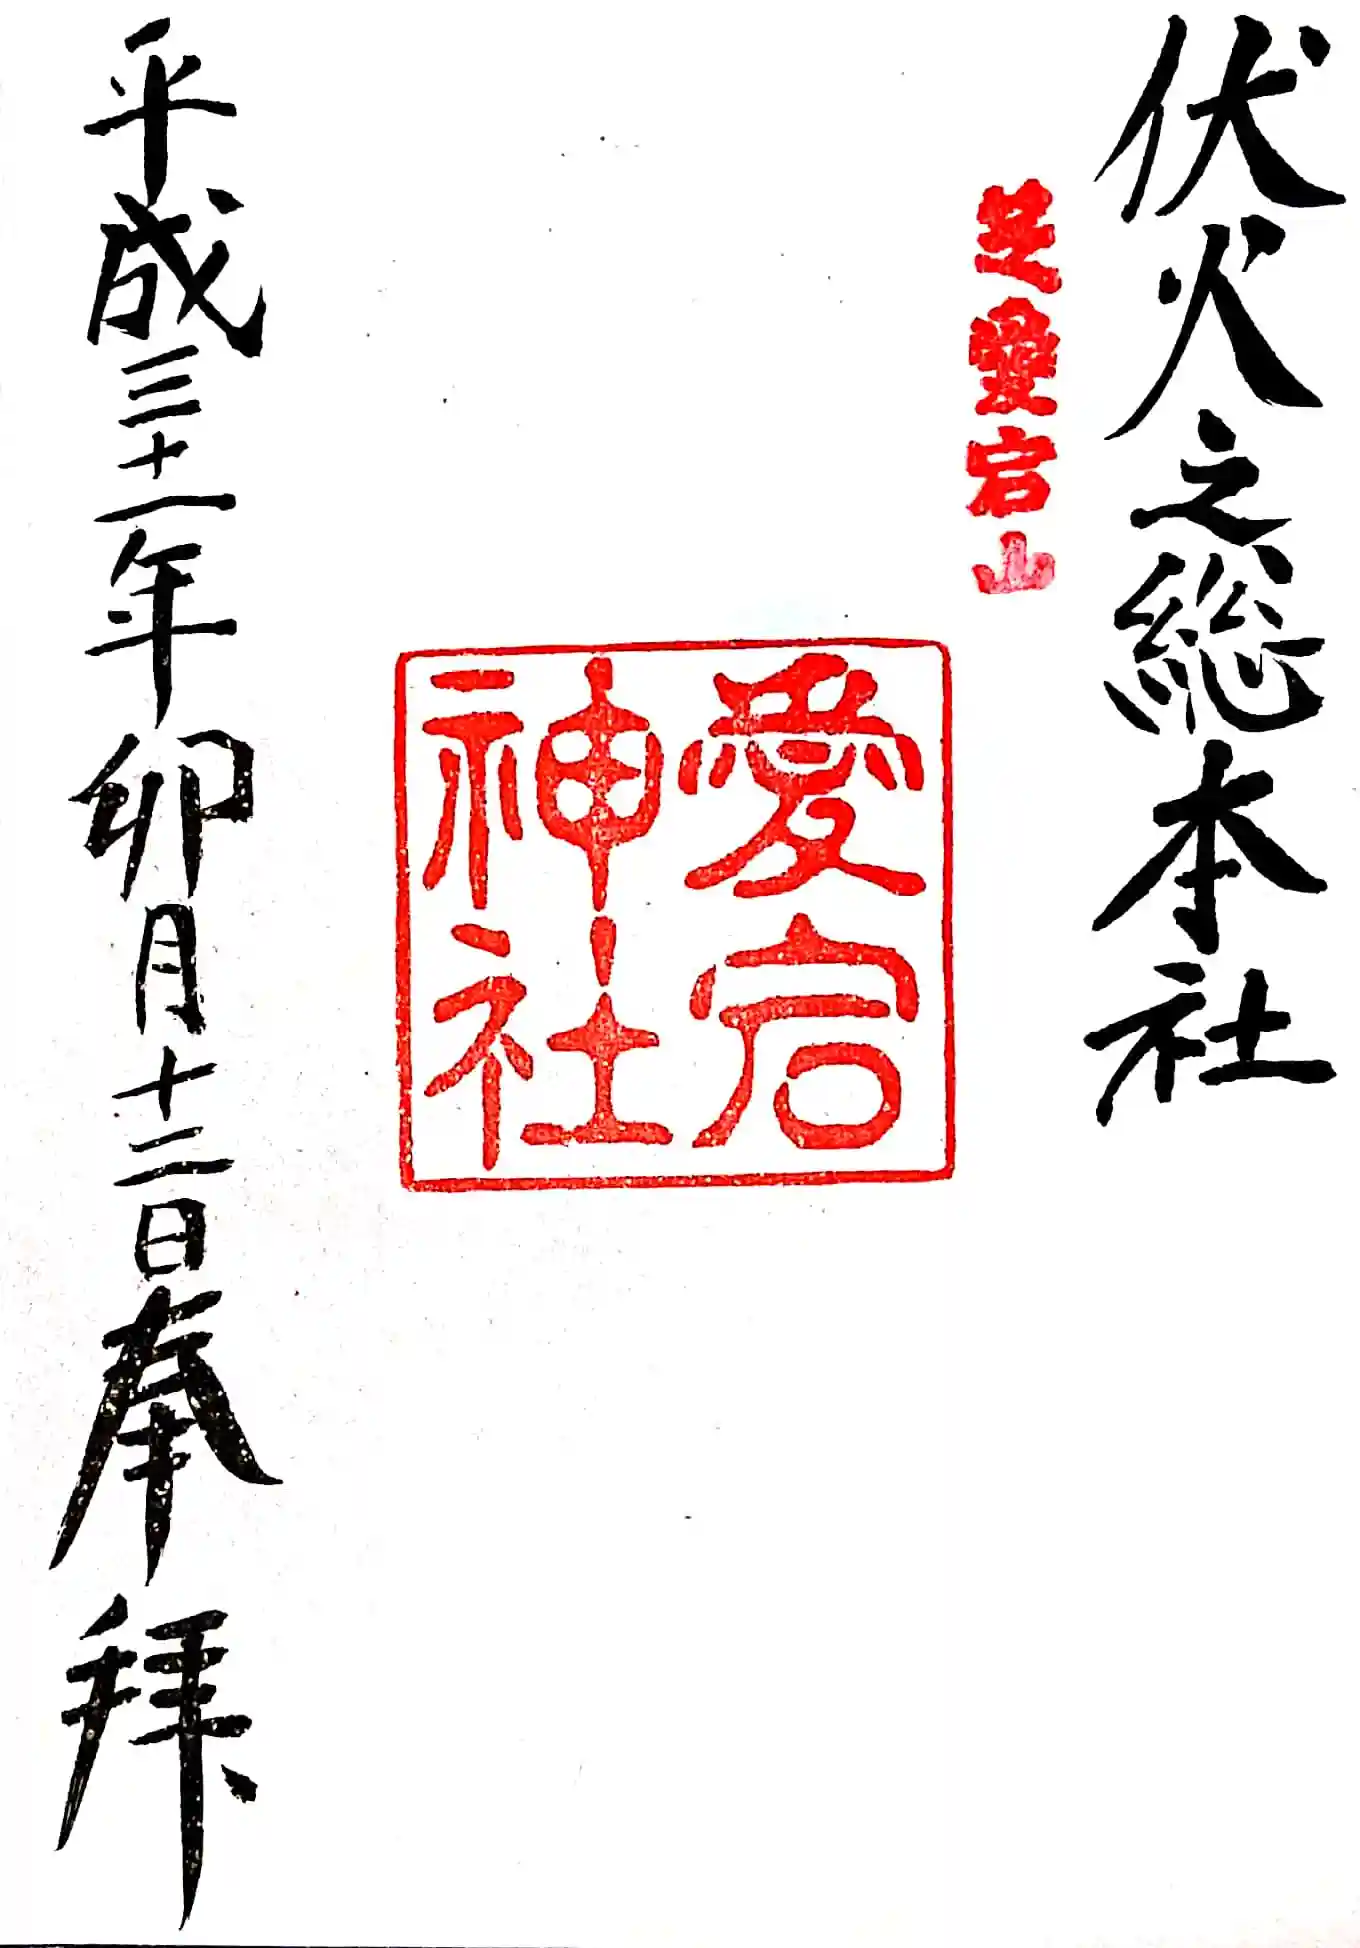 伏火之総本社
芝愛宕山
愛宕
神社
平成三十一年卯月十二日奉拝